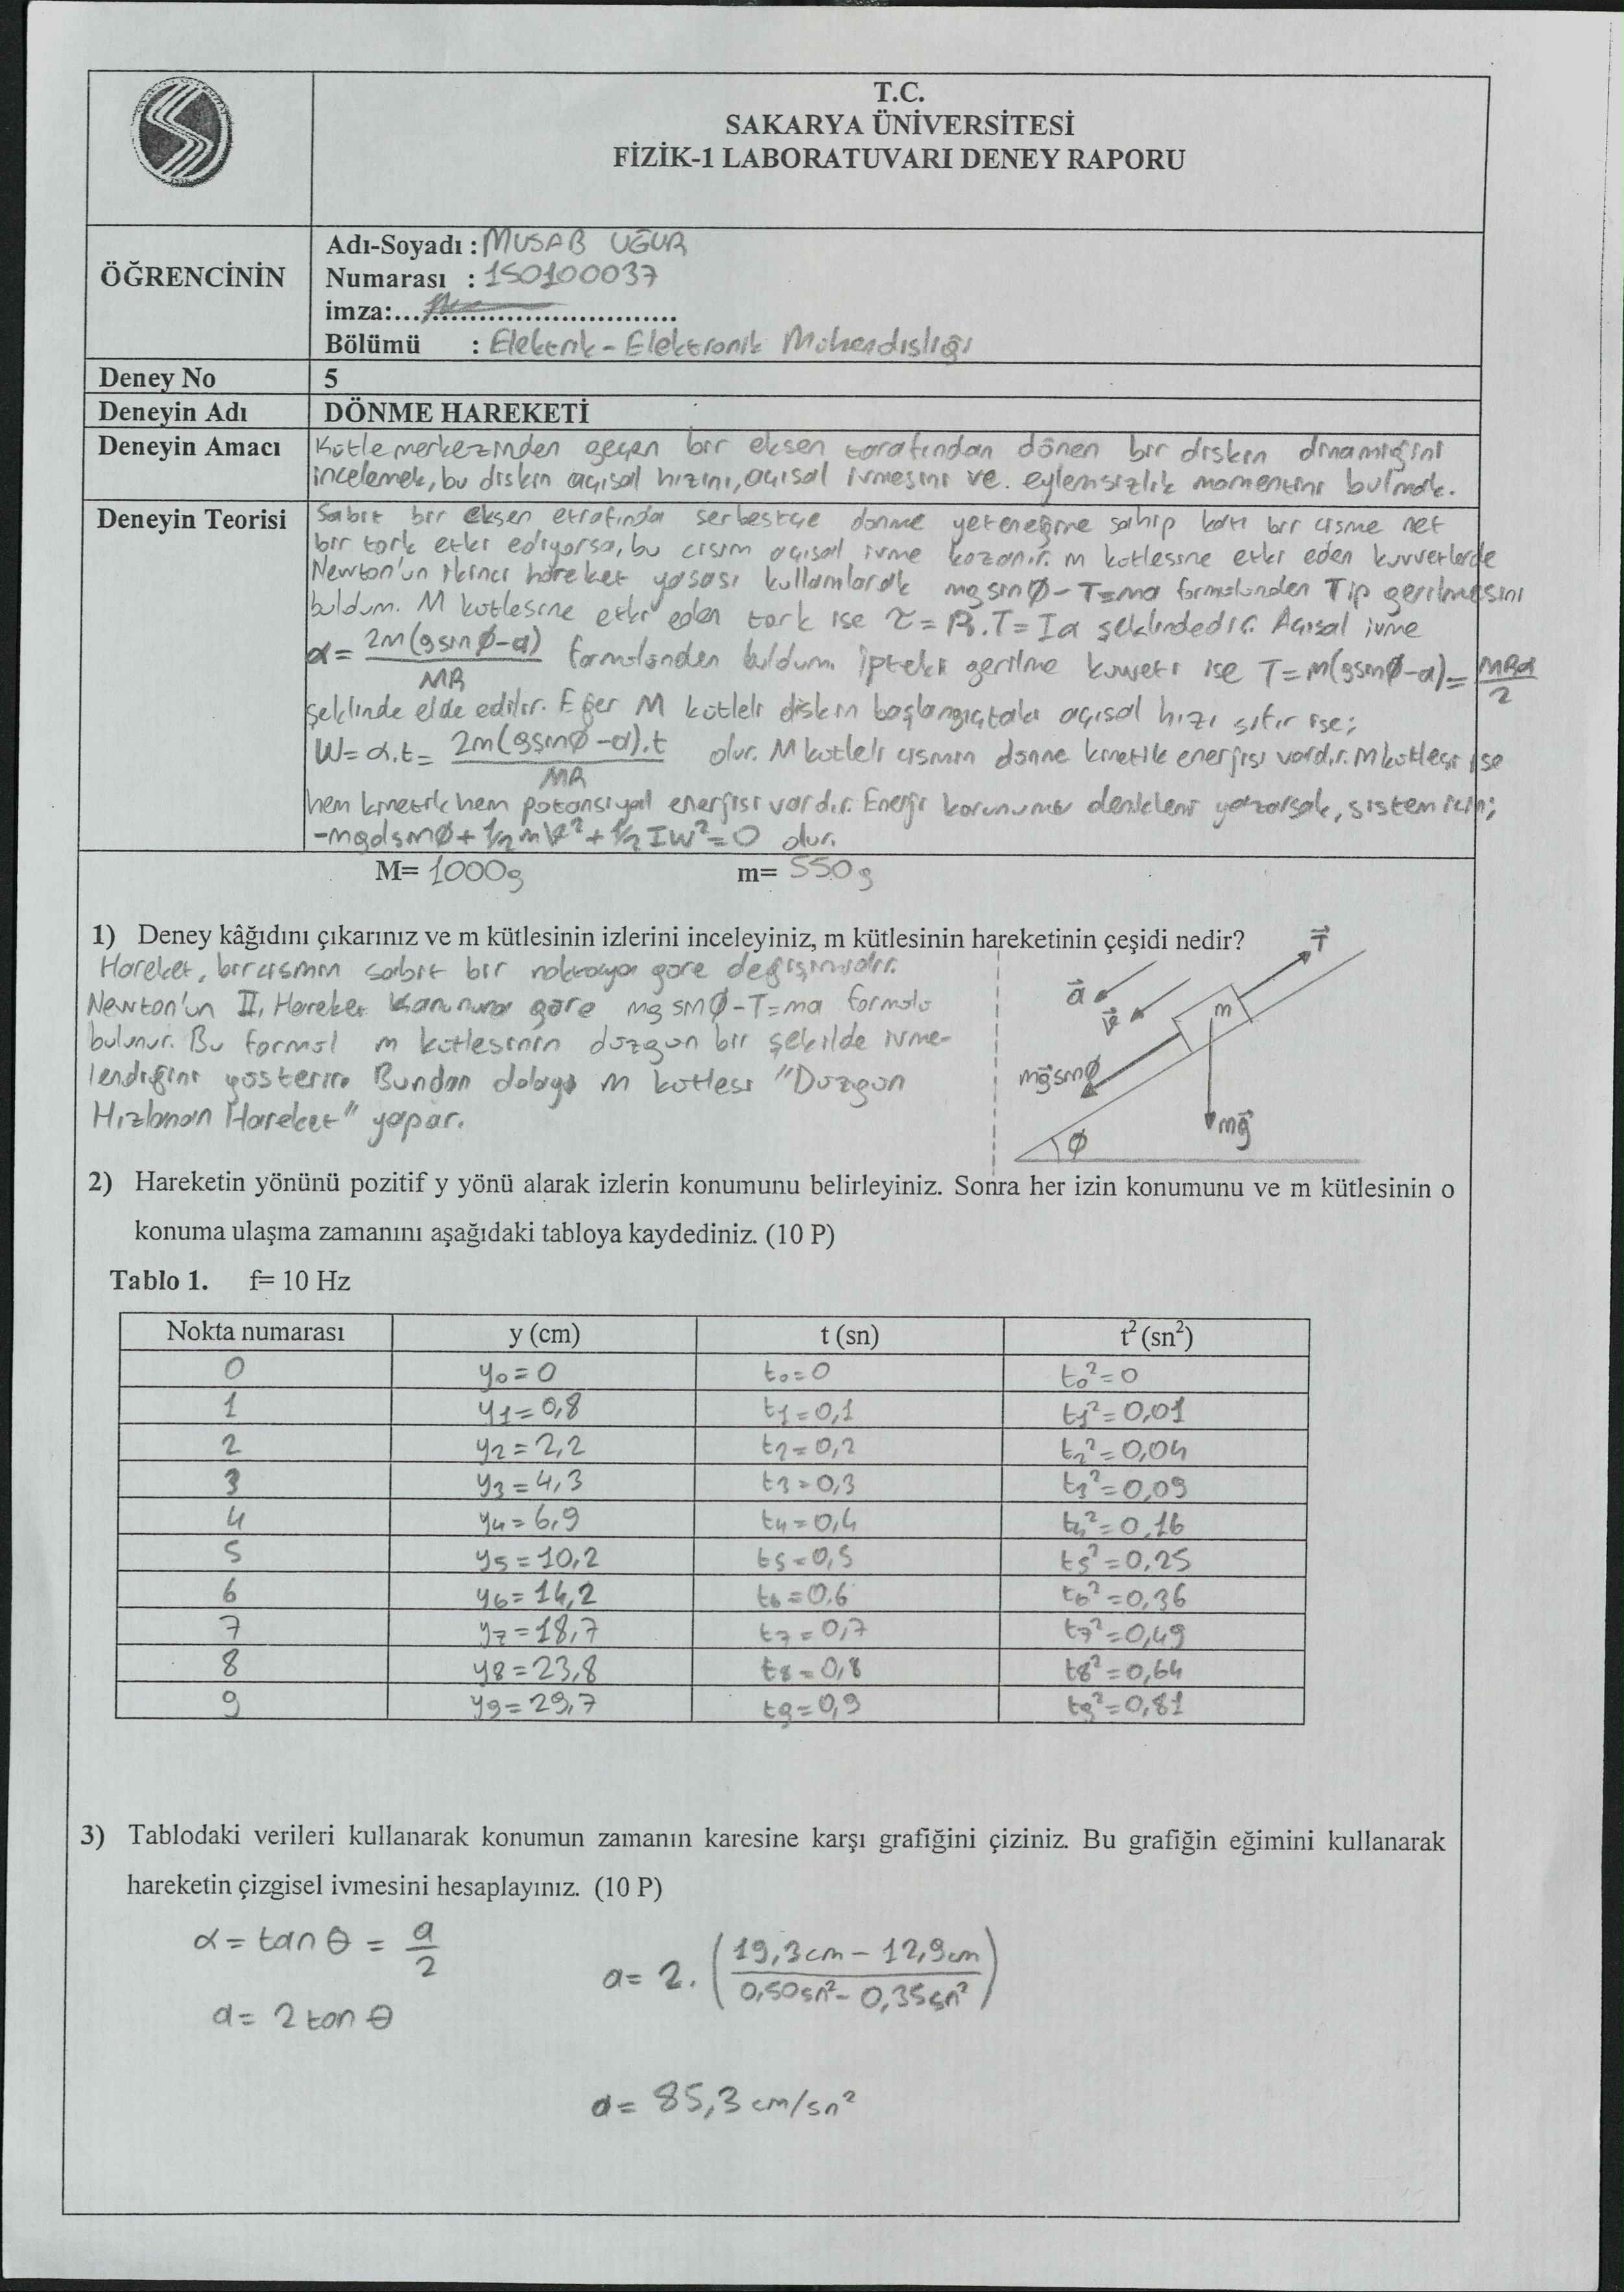 T.C.
SAKARYA ÜNİVERSİTESİ
FİZİK-1 LABORATUVARI DENEY RAPORU
ÖĞRENCİNİN
Adı-Soyadı : MUSAB UĞUR
Numarası : 150100037
imza:..................................
Bölümü : Elektrik-Elektronik Mühendisliği
Deney No 5
Deneyin Adı DÖNME HAREKETİ
Deneyin Amacı Kütle merkezinden geçen bir eksen tarafından dönen bir diskin dinamiğini
incelemek, bu diskin açısal hızını, açısal ivmesini ve eylemsizlik momentini bulmak.
Deneyin Teorisi Sabit bir eksen etrafında serbestçe dönme yeteneğine sahip katı bir cisme net
bir tork etki ediyorsa, bu cisim açısal ivme kazanır. m kütlesine etki eden kuvvetlerde
Newton'un ikinci hareket yasası kullanılarak mg sin∅ - T = ma formülünden T ip gerilmesini
buldum. M kütlesine etki eden tork ise τ = R.T = Iα şeklindedir. Açısal ivme
α = 2m(gsin∅-a)/MR formülünden buldum. İpteki gerilme kuvveti ise T = m(gsin∅-a) = MRα/2
şeklinde elde edilir. Eğer M kütleli diskin başlangıçtaki açısal hızı sıfır ise;
W = α.t = 2m(gsin∅-a).t/MR olur. M kütleli cismin dönme kinetik enerjisi vardır. m kütlesi ise
hem kinetik hem potansiyel enerjisi vardır. Enerji korunumu denklemi yazarsak, sistem için;
-mgdsin∅ + 1/2 mV² + 1/2 IW² = 0 olur.
M= 1000g m= 550g
1) Deney kâğıdını çıkarınız ve m kütlesinin izlerini inceleyiniz, m kütlesinin hareketinin çeşidi nedir?
Hareket, bir cismin sabit bir noktaya göre değişimidir.
Newton'un II. Hareket Kanununa göre mg sin∅-T=ma formülü
bulunur. Bu formül m kütlesinin düzgün bir şekilde ivme-
lendiğini gösterir. Bundan dolayı m kütlesi "Düzgün
Hızlanan Hareket" yapar.
T
a
v
m
mgsin∅
mg
∅
2) Hareketin yönünü pozitif y yönü alarak izlerin konumunu belirleyiniz. Sonra her izin konumunu ve m kütlesinin o
konuma ulaşma zamanını aşağıdaki tabloya kaydediniz. (10 P)
Tablo 1. f= 10 Hz
Nokta numarası y (cm) t (sn) t² (sn²)
0 y₀=0 t₀=0 t₀²=0
1 y₁=0,8 t₁=0,1 t₁²=0,01
2 y₂=2,2 t₂=0,2 t₂²=0,04
3 y₃=4,3 t₃=0,3 t₃²=0,09
4 y₄=6,9 t₄=0,4 t₄²=0,16
5 y₅=10,2 t₅=0,5 t₅²=0,25
6 y₆=14,2 t₆=0,6 t₆²=0,36
7 y₇=18,7 t₇=0,7 t₇²=0,49
8 y₈=23,8 t₈=0,8 t₈²=0,64
9 y₉=29,7 t₉=0,9 t₉²=0,81
3) Tablodaki verileri kullanarak konumun zamanın karesine karşı grafiğini çiziniz. Bu grafiğin eğimini kullanarak
hareketin çizgisel ivmesini hesaplayınız. (10 P)
α = tan θ = a/2
a = 2 tan θ
a = 2 . (19,3cm - 12,9cm / 0,50sn² - 0,35sn²)
a = 85,3 cm/sn²